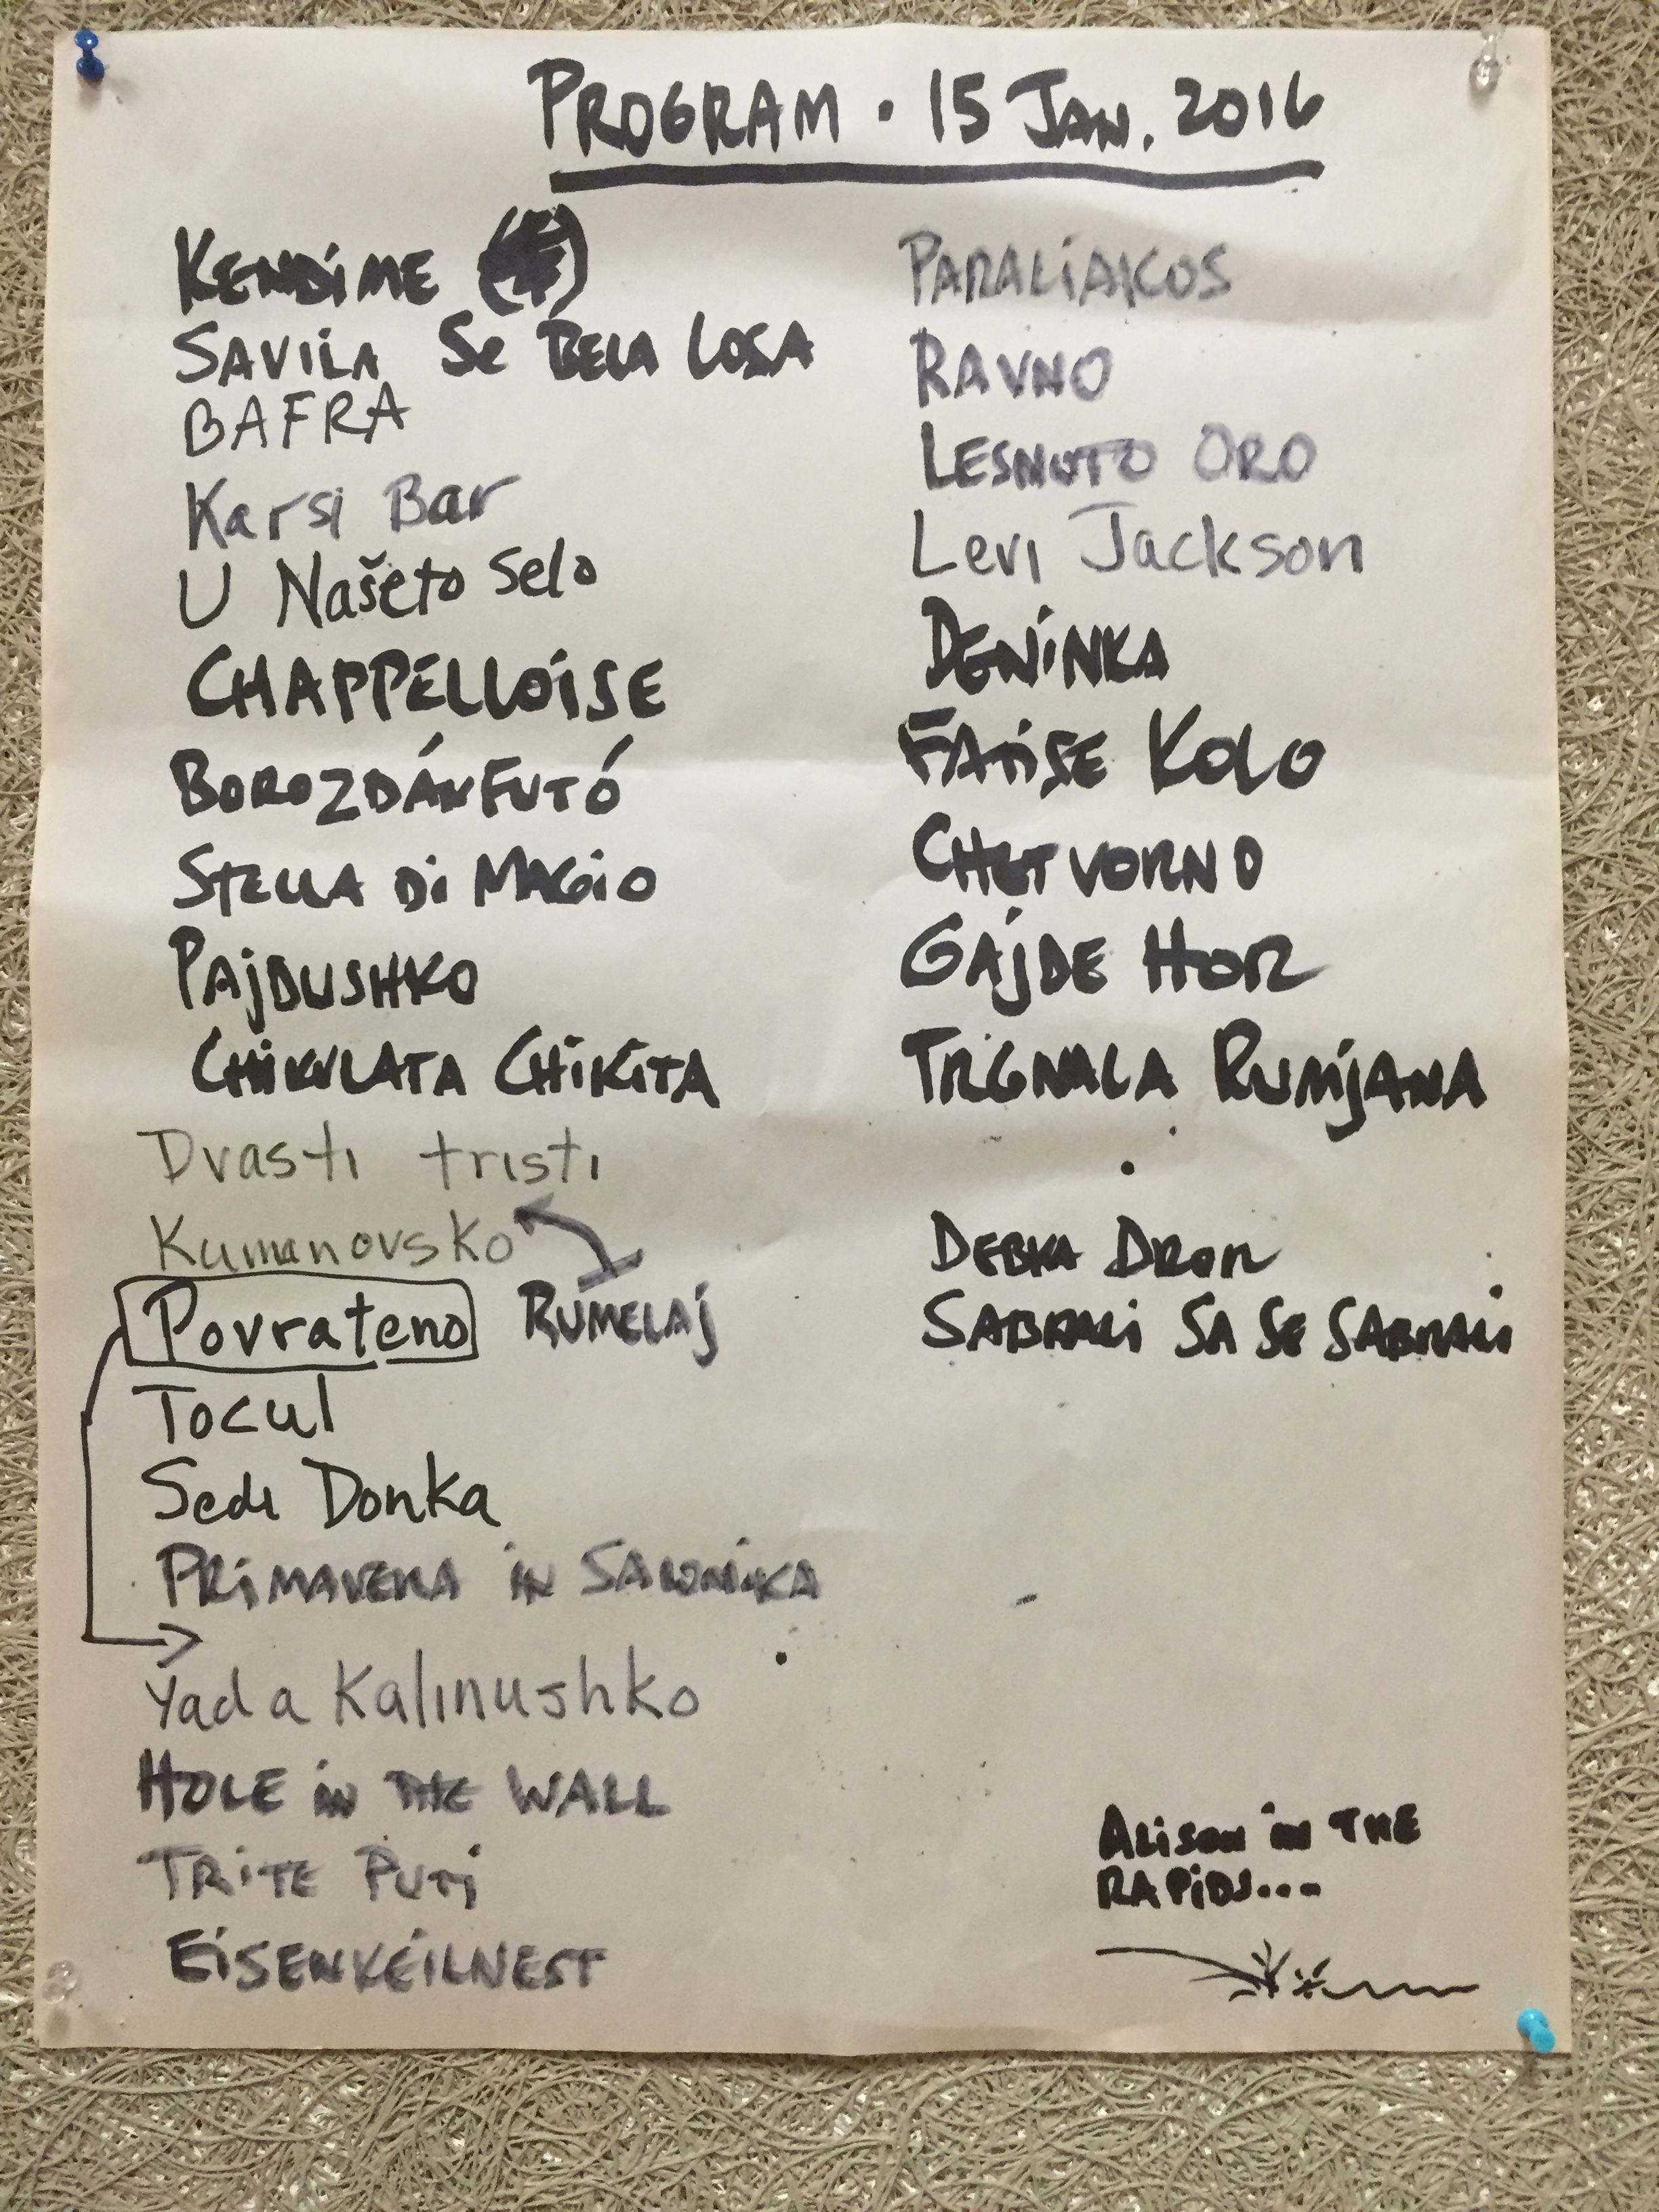 PROGRAM · 15 JAN. 2016
KENDIME
SAVILA SE BELA LOSA
BAFRA
Karsi Bar
U Našeto Selo
CHAPPELLOISE
BOROZDÁNFUTÓ
STELLA DI MAGIO
PAJDUSHKO
CHIKULATA CHIKITA
Dvasti tristi
Kumanovsko
Povrateno RUMELAJ
Tocul
Sedi Donka
PRIMAVERA IN SALONIKA
Yada Kalinushko
HOLE IN THE WALL
TRITE PUTI
EISENKEILNEST
PARALIAKOS
RAVNO
LESNOTO ORO
Levi Jackson
DENINKA
FATISE KOLO
CHETVORNO
GAJDE HOR
TRGNALA RUMJANA
DEBKA DROR
SABRALI SA SE SABRALI
ALISON IN THE
RAPIDS...